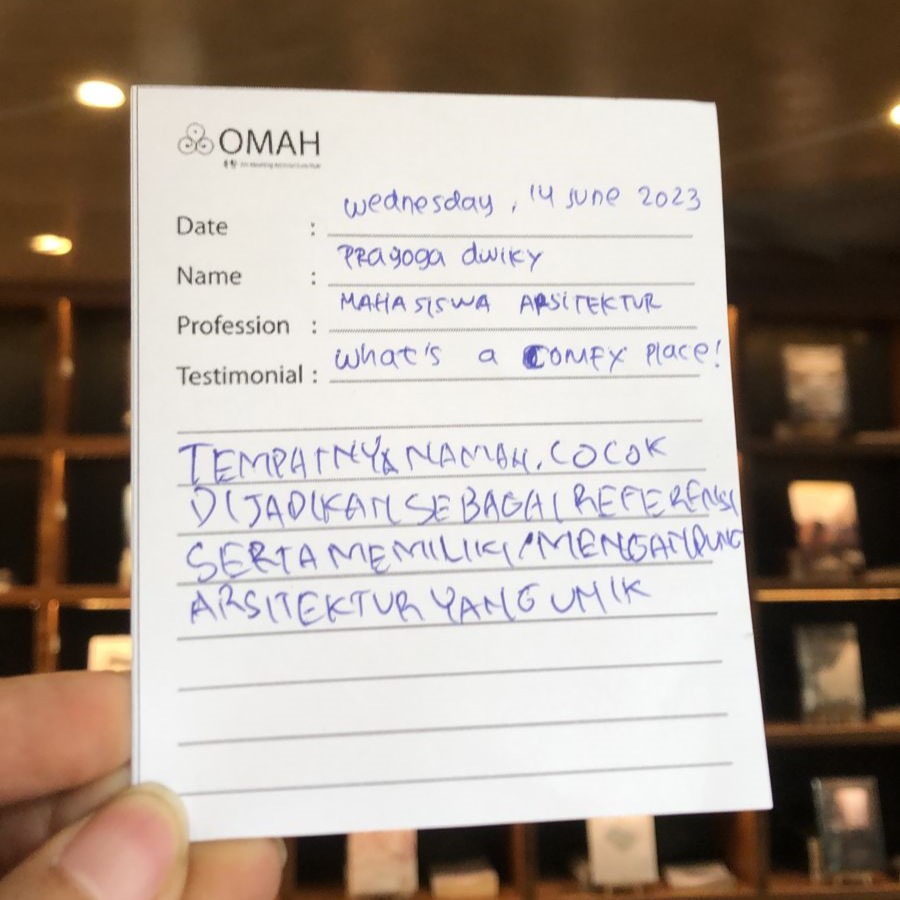 OMAH
Date : wednesday, 14 June 2023
Name : PRagoga dwiky
Profession : MAHASISWA ARSITEKTUR
Testimonial : what's a COMFY Place!
TEMPATNYA NAMAH, COCOK
DIJADIKAN SEBAGAI REFERENSI
SERTA MEMILIKI/MENGANDUNG
ARSITEKTUR YANG UNIK